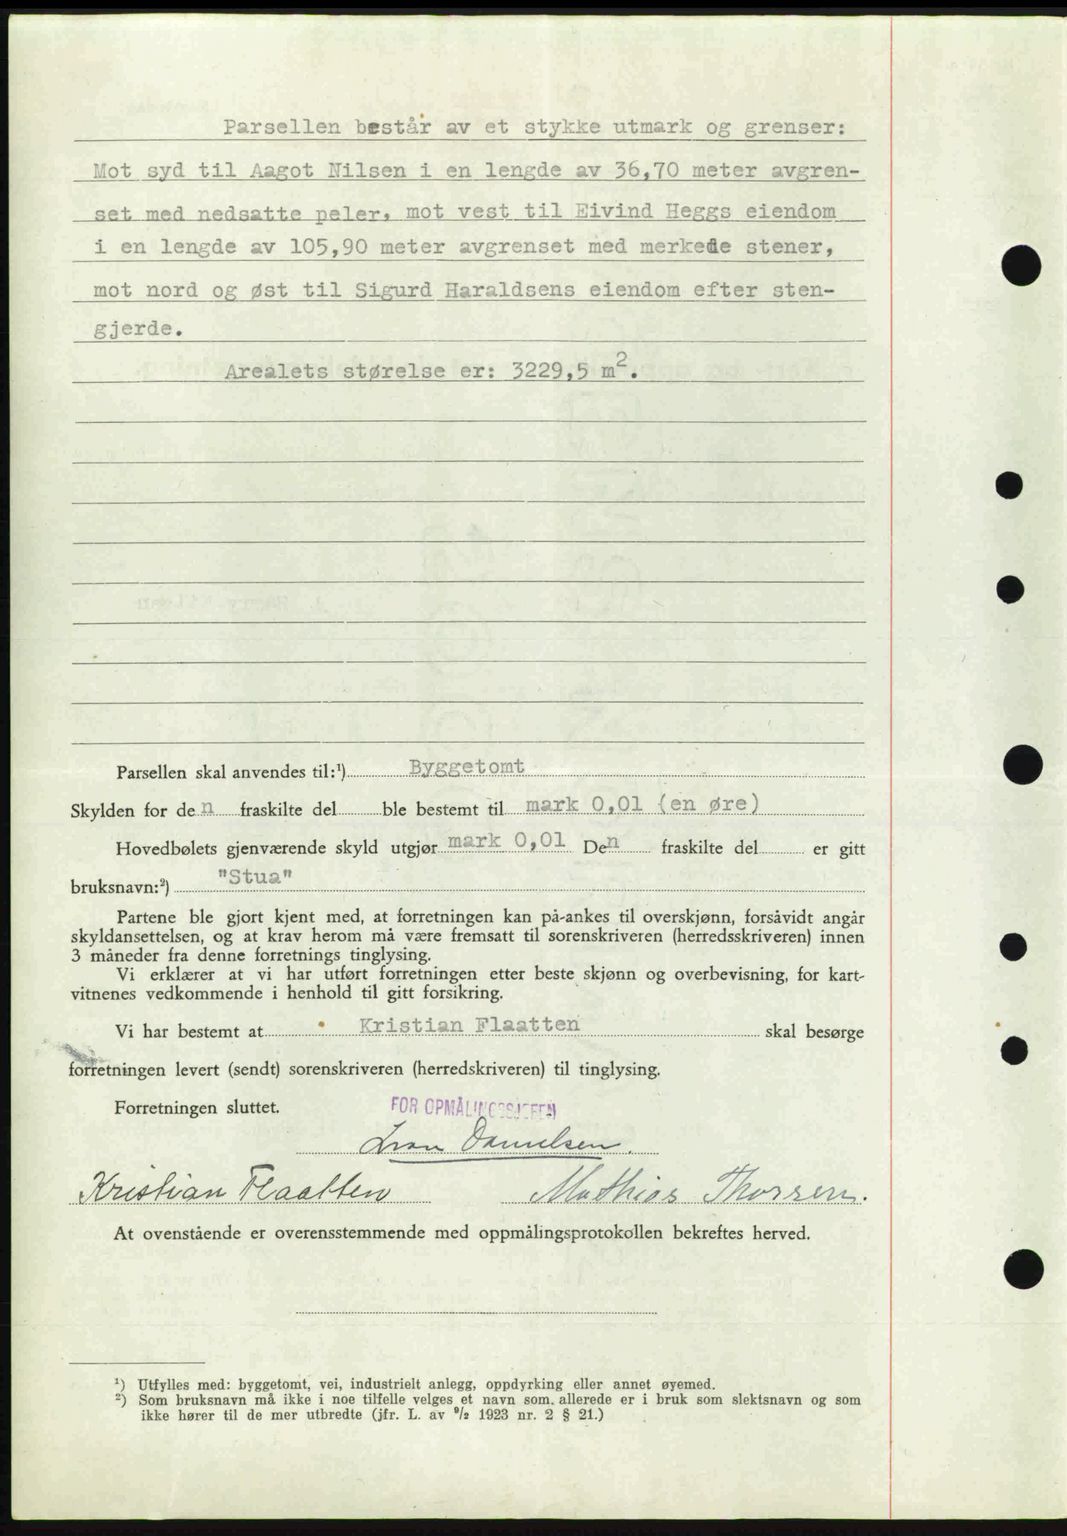 Parsellen består av et stykke utmark og grenser:
Mot syd til Aagot Nilsen i en lengde av 36,70 meter avgren-
set med nedsatte peler, mot vest til Eivind Heggs eiendom
i en lengde av 105,90 meter avgrenset med merkede stener,
mot nord og øst til Sigurd Haraldsens eiendom efter sten-
gjerde.
Arealets størelse er: 3229,5 m².
Parsellen skal anvendes til:¹) Byggetomt
Skylden for den fraskilte del ble bestemt til mark 0,01 (en øre)
Hovedbølets gjenværende skyld utgjør mark 0,01 Den fraskilte del er gitt
bruksnavn:²) "Stua"
Partene ble gjort kjent med, at forretningen kan på-ankes til overskjønn, forsåvidt angår
skyldansettelsen, og at krav herom må være fremsatt til sorenskriveren (herredsskriveren) innen
3 måneder fra denne forretnings tinglysing.
Vi erklærer at vi har utført forretningen etter beste skjønn og overbevisning, for kart-
vitnenes vedkommende i henhold til gitt forsikring.
Vi har bestemt at Kristian Flaatten skal besørge
forretningen levert (sendt) sorenskriveren (herredskriveren) til tinglysing.
Forretningen sluttet. FOR OPMÅLINGSSJEFEN
Danielsen.
Kristian Flaatten Mathias Thorsen.
At ovenstående er overensstemmende med oppmålingsprotokollen bekreftes herved.
¹) Utfylles med: byggetomt, vei, industrielt anlegg, oppdyrking eller annet øyemed.
²) Som bruksnavn må ikke i noe tilfelle velges et navn som allerede er i bruk som slektsnavn og som
ikke hører til de mer utbredte (jfr. L. av ⁹/₂ 1923 nr. 2 § 21.)